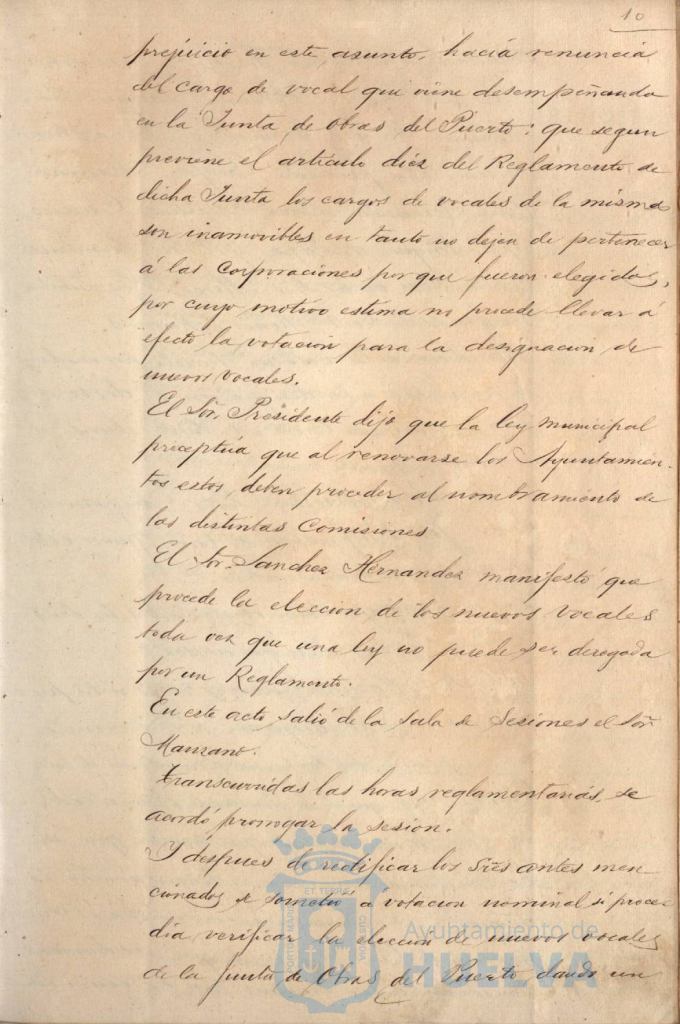 10
prejuicio en este asunto, hacía renuncia
del cargo de vocal que viene desempeñando
en la Junta de Obras del Puerto: que segun
previene el artículo diez del Reglamento de
dicha Junta los cargos de vocales de la misma
son inamovibles en tanto no dejen de pertenecer
á las Corporaciones por que fueron elegidos,
por cuyo motivo estima no procede llevar á
efecto la votacion para la designacion de
nuevos vocales.
El Sor. Presidente dijo que la ley municipal
preceptúa que al renovarse los Ayuntamien-
tos estos deben proceder al nombramiento de
las distintas Comisiones
El Sor. Sanchez Hernandez manifestó que
procede la eleccion de los nuevos vocales
toda vez que una ley no puede ser derogada
por un Reglamento.
En este acto salió de la sala de Sesiones el Sor.
Manzano.
Transcurridas las horas reglamentarias, se
acordó prorrogar la sesion.
Y despues de rectificar los Sres antes men-
cionados se sometió á votacion nominal si proce-
dia verificar la eleccion de nuevos vocales
de la Junta de Obras del Puerto dando un
Ayuntamiento de
HUELVA